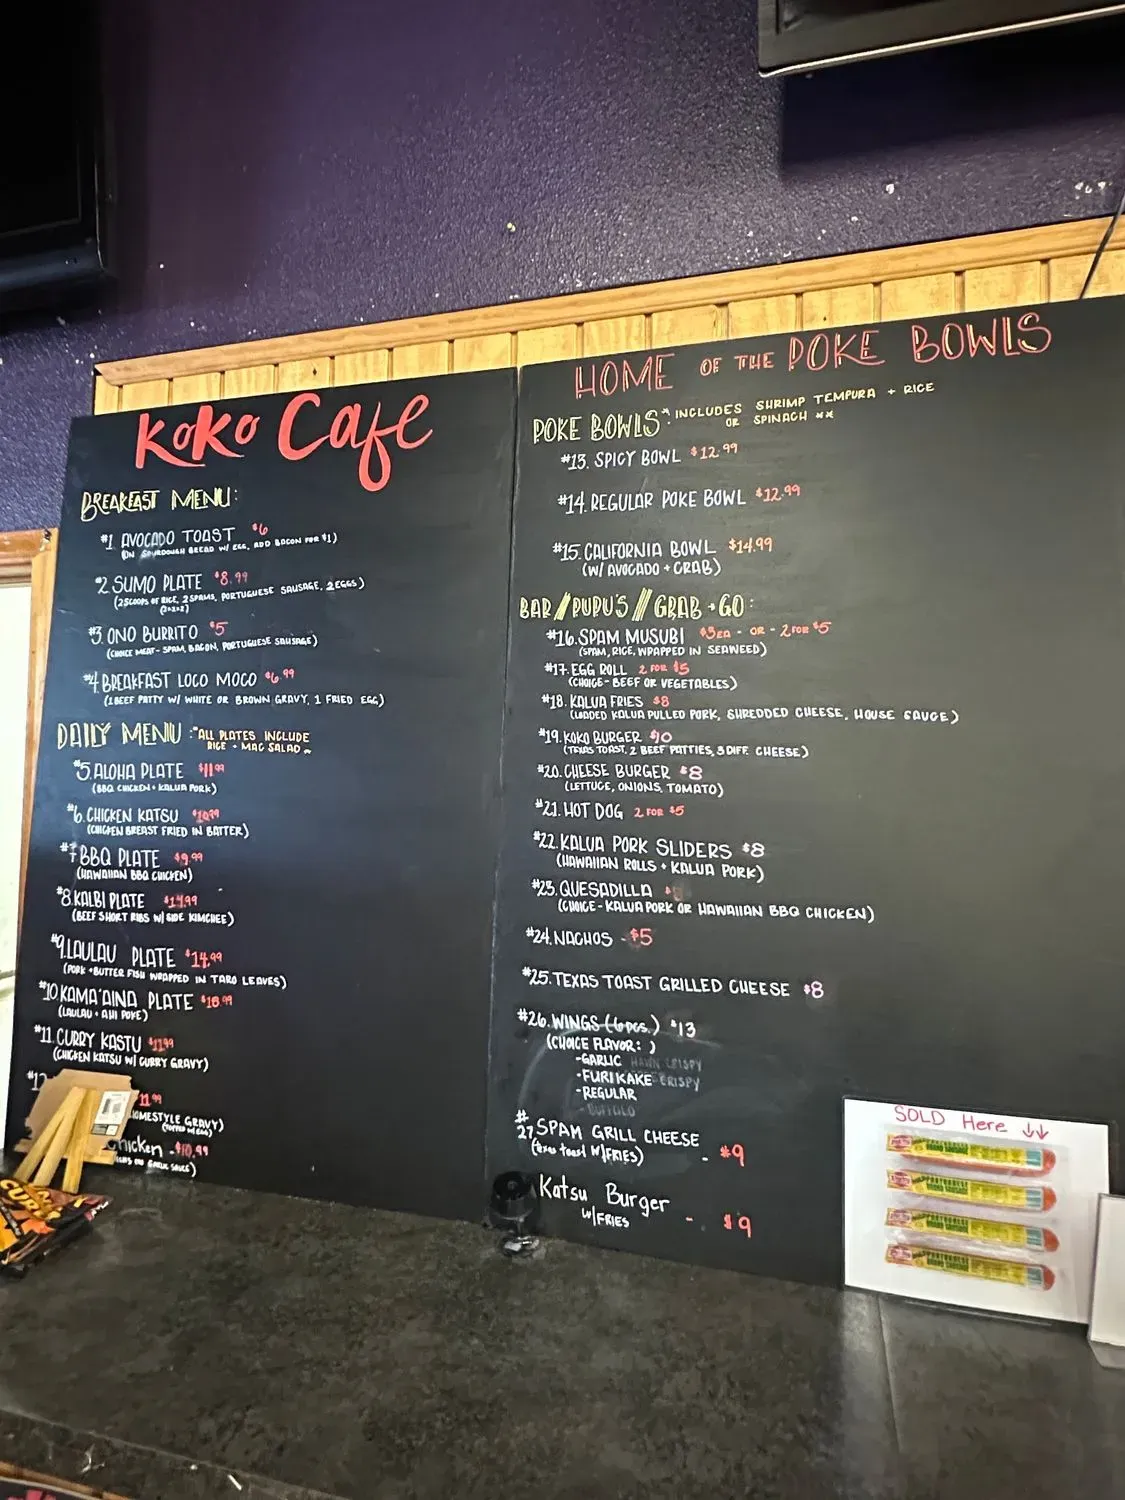 KoKo Cafe
BREAKFAST MENU:
#1. AVOCADO TOAST $6
(ON SOURDOUGH BREAD W/ EGG, ADD BACON FOR $1)
#2. SUMO PLATE $8.99
(2 SCOOPS OF RICE, 2 SPAMS, PORTUGUESE SAUSAGE, 2 EGGS)
#3. ONO BURRITO $5
(CHOICE MEAT - SPAM, BACON, PORTUGUESE SAUSAGE)
#4. BREAKFAST LOCO MOCO $6.99
(1 BEEF PATTY W/ WHITE OR BROWN GRAVY, 1 FRIED EGG)
DAILY MENU: *ALL PLATES INCLUDE
RICE + MAC SALAD *
#5. ALOHA PLATE $11.99
(BBQ CHICKEN + KALUA PORK)
#6. CHICKEN KATSU
(CHICKEN BREAST FRIED IN BATTER)
#7 BBQ PLATE $9.99
(HAWAIIAN BBQ CHICKEN)
#8. KALBI PLATE
(BEEF SHORT RIBS W/ SIDE KIMCHEE)
#9. LAULAU PLATE $14.99
(PORK + BUTTER FISH WRAPPED IN TARO LEAVES)
#10. KAMA'AINA PLATE
(LAULAU + AHI POKE)
#11. CURRY KASTU $11.99
(CHICKEN KATSU W/ CURRY GRAVY)
#12
11.99
HOMESTYLE GRAVY)
Chicken - $10.99
HOME OF THE POKE BOWLS
POKE BOWLS: *INCLUDES SHRIMP TEMPURA + RICE
OR SPINACH **
#13. SPICY BOWL $12.99
#14. REGULAR POKE BOWL $12.99
#15. CALIFORNIA BOWL $14.99
(W/ AVOCADO + CRAB)
BAR // PUPU'S // GRAB + GO:
#16. SPAM MUSUBI $3 EA - OR - 2 FOR $5
(SPAM, RICE, WRAPPED IN SEAWEED)
#17. EGG ROLL 2 FOR $5
(CHOICE - BEEF OR VEGETABLES)
#18. KALUA FRIES $8
(LOADED KALUA PULLED PORK, SHREDDED CHEESE, HOUSE SAUCE)
#19. KOKO BURGER $10
(TEXAS TOAST, 2 BEEF PATTIES, 3 DIFF. CHEESE)
#20. CHEESE BURGER $8
(LETTUCE, ONIONS, TOMATO)
#21. HOT DOG 2 FOR $5
#22. KALUA PORK SLIDERS $8
(HAWAIIAN ROLLS + KALUA PORK)
#23. QUESADILLA
(CHOICE - KALUA PORK OR HAWAIIAN BBQ CHICKEN)
#24. NACHOS - $5
#25. TEXAS TOAST GRILLED CHEESE $8
#26. WINGS (6 PCS.) $13
(CHOICE FLAVOR: )
-GARLIC CRISPY
-FURIKAKE CRISPY
-REGULAR
-BUFFALO
#27 SPAM GRILL CHEESE
(texas toast W/FRIES) - $9
Katsu Burger
W/FRIES - $9
SOLD Here ↓↓